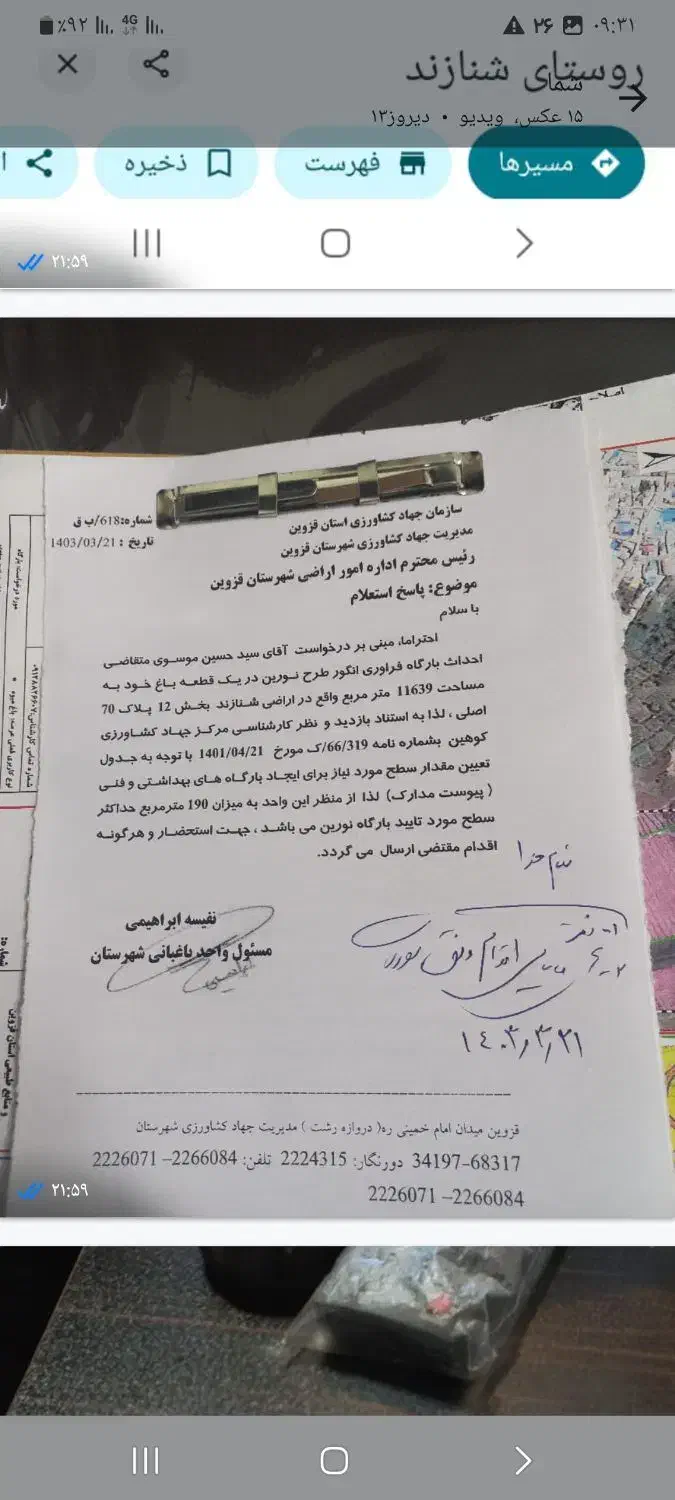 ۰۹:۳۱ ۲۶ 4G ٪۹۲
روستای شنازند
شما
۱۵ عکس، ویدیو • دیروز۱۳
مسیرها فهرست ذخیره
۲۱:۵۹
شماره:618/ب ق
تاریخ : 1403/03/21
سازمان جهاد کشاورزی استان قزوین
مدیریت جهاد کشاورزی شهرستان قزوین
رئیس محترم اداره امور اراضی شهرستان قزوین
موضوع: پاسخ استعلام
با سلام
احتراما، مبنی بر درخواست آقای سید حسین موسوی متقاضی
احداث بارگاه فراوری انگور طرح نورین در یک قطعه باغ خود به
مساحت 11639 متر مربع واقع در اراضی شنازند بخش 12 پلاک 70
اصلی ، لذا به استناد بازدید و نظر کارشناسی مرکز جهاد کشاورزی
کوهین بشماره نامه 66/319/ک مورخ 1401/04/21 با توجه به جدول
تعیین مقدار سطح مورد نیاز برای ایجاد بارگاه های بهداشتی و فنی
( پیوست مدارک) لذا از منظر این واحد به میزان 190 مترمربع حداکثر
سطح مورد تایید بارگاه نورین می باشد ، جهت استحضار و هرگونه
اقدام مقتضی ارسال می گردد.
نفیسه ابراهیمی
مسئول واحد باغبانی شهرستان
اقدام
۱۴۰۳٫۳٫۲۱
قزوین میدان امام خمینی ره( دروازه رشت ) مدیریت جهاد کشاورزی شهرستان
34197-68317 دورنگار: 2224315 تلفن: 2266084– 2226071
2266084– 2226071
۲۱:۵۹
مورد درخواست: بارگاه
شماره تماس کارشناس:
نوع کاربری فعلی عرصه: باغ میوه
شماره:
و منابع طبیعی استان قزوین